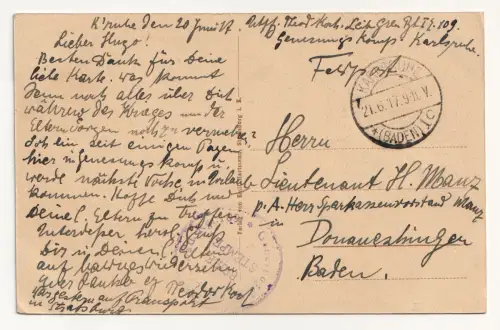 K'ruhe den 20 Juni 17.
Lieber Hugo!
Besten Dank für Deine
liebe Karte. was kommt
denn noch alles über Dich
während des Krieges und der
Elternsorgen noch zu
Ich bin seit einigen Tagen
hier in Genesungskomp. u.
werde nächste Woche in Urlaub
kommen. Hoffe Dich und
Deine l. Eltern zu treffen.
Interdesser herzl. Gruß
Dir u. Deinen l. Eltern
auf baldiges Wiedersehen
Dein Theodor Korb
auf Transport
in Strassburg
Theod. Korb. Leib Gren. Rgt. 109.
Genesungs Komp Karlsruhe.
Feldpost
KARLSRUHE
21.6.17. 9-11. V.
*(BADEN) 1 C
Herrn
Lieutenant H. Manz
p. A. Herr Sparkassenvorstand Manz
Donaueschingen
Baden.